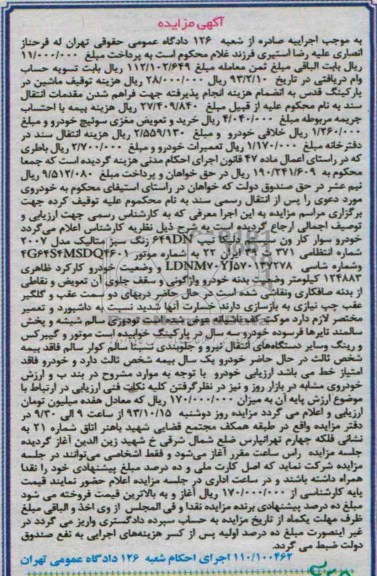 آگهی مزایده
به موجب اجراییه صادره از شعبه ۱۲۶ دادگاه عمومی حقوقی تهران له فرحناز
انصاری علیه رضا استیری فرزند غلام محکوم است به پرداخت مبلغ ۱۱/۰۰۰/۰۰۰
ریال بابت الباقی ثمن معامله مبلغ ۱۱۲/۱۰۲/۶۴۹ ریال بابت تسویه حساب
وام دریافتی در تاریخ ۹۳/۲/۱۰ مبلغ ۲۸/۰۰۰/۰۰۰ ریال هزینه توقیف ماشین در
پارکینگ قدس به انضمام هزینه انجام پذیرفته جهت فراهم شدن مقدمات انتقال
سند به نام محکوم علیه از قبیل مبلغ ۲۷/۴۰۹/۸۴۰ ریال هزینه بیمه با احتساب
جریمه مربوطه مبلغ ۴/۰۴۰/۰۰۰ ریال خرید و تعویض مغزی سوئیچ خودرو و مبلغ
۱/۲۶۰/۰۰۰ ریال خلافی خودرو و مبلغ ۲/۵۵۹/۱۳۰ ریال هزینه انتقال سند در
دفترخانه مبلغ ۱/۱۷۰/۰۰۰ ریال تعمیرات خودرو و مبلغ ۲/۷۰۰/۰۰۰ ریال باطری
که در راستای اعمال ماده ۴۷ قانون اجرای احکام مدنی هزینه گردیده است که جمعا
محکوم به ۱۹۰/۲۴۱/۶۰۹ ریال در حق خواهان و پرداخت مبلغ ۹/۵۱۲/۰۸۰ ریال
نیم عشر در حق صندوق دولت که خواهان در راستای استیفای محکوم به خودروی
مورد دعوی را پس از انتقال رسمی سند به نام محکوم علیه توقیف کرده جهت
برگزاری مراسم مزایده به این اجرا معرفی که به کارشناس رسمی جهت ارزیابی و
توصیف اجمالی ارجاع گردیده است به شرح ذیل نظریه کارشناس اعلام می‌گردد
خودرو سوار کار ون سیستم دلیکا تیپ ۶۴۹DN رنگ سبز متالیک مدل ۲۰۰۷
شماره انتظامی ۳۷۱ ق ۳۹ ایران ۲۲ به شماره موتور
وشماره شاسی وضعیت خودرو کارکرد ظاهری
۱۲۴۸۸۲ کیلومتر وضعیت بدنه خودرو واژگونی و سقف جلوی آن تعویض و نقاطی
از بدنه صافکاری ونقاشی شده است در حال حاضر دربهای دو سمت عقب و گلگیر
عقب چپ نیازی به بازسازی دارند خسارت آنها شدید نیست به داشبورد و تعمیر
مختصر لازم دارد موکت کف باشیانه عوض شده است تودوزی سالم شیشه و پخش
سالمند تایرها فرسوده خودرو سه سال در پارکینگ خوابیده است موتور و گیربکس
و رینگ وسایر دستگاه‌های انتقال نیرو و جلوبندی نسبتا سالم کولر سالم فاقد بیمه
شخص ثالث در حال حاضر خودرو یک سال بیمه شخص ثالث دارد و خودرو فاقد
امتیاز خط می باشد ارزیابی خودرو با توجه به موارد مشروح در بند ب و ارزش
خودروی مشابه در بازار روز و نیز در نظرگرفتن کلیه نکات فنی ارزیابی در ارتباط با
موضوع ارزش پایه آن به میزان ۱۷۰/۰۰۰/۰۰۰ ریال که معادل هفده میلیون تومان
ارزیابی و اعلام می گردد مزایده روز دوشنبه ۹۳/۱۰/۱۵ از ساعت ۹ الی ۹/۳۰ در
دفتر مزایده واقع در طبقه همکف مجتمع قضایی شهید باهنر اتاق شماره ۲۱ به
نشانی فلکه چهارم تهرانپارس ضلع شمال شرقی خ شهید زین الدین آغاز گردیده
جلسه مزایده راس ساعت مقرر آغاز می‌شود و فقط اشخاصی می‌توانند در جلسه
مزایده شرکت نماید که اصل کارت ملی و ده درصد مبلغ پیشنهادی خود را نقدا
همراه داشته باشند و در ساعت اداری در جلسه مزایده اعلام حضور نمایند قیمت
پایه کارشناسی از ۱۷۰/۰۰۰/۰۰۰ ریال آغاز و به بالاترین قیمت فروخته می شود
مبلغ ده درصد پیشنهادی برنده مزایده نقدا و فی المجلس از وی اخذ و الباقی مبلغ
ظرف مهلت یکماه از تاریخ مزایده به حساب سپرده دادگستری واریز می گردد در
غیر اینصورت مبلغ ده درصد اولیه پس از کسر هزینه‌های اجرایی به نفع صندوق
دولت ضبط می گردد.
۱۱۰/۱۰۰۴۶۲ اجرای احکام شعبه ۱۲۶ دادگاه عمومی تهران